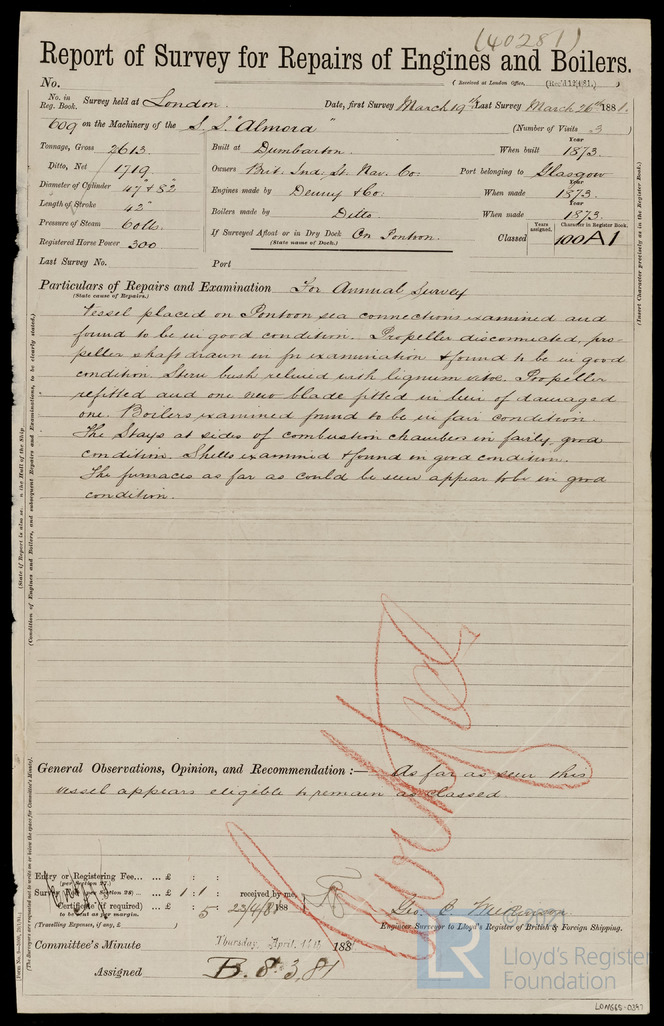 (40281)
Report of Survey for Repairs of Engines and Boilers.
No.
(Received at London Office,
No. in Reg. Book. Survey held at London. Date, first Survey March 19th Last Survey March 26th 1881.
609 on the Machinery of the S.S. "Almora" (Number of Visits 3)
Tonnage, Gross 2613. Built at Dumbarton. When built Year 1873.
Ditto, Net 1719. Owners Brit. Ind. St. Nav. Co: Port belonging to Glasgow
Diameter of Cylinder 47" & 82" Engines made by Denny & Co: When made Year 1873.
Length of Stroke 42" Boilers made by Ditto. When made Year 1873.
Pressure of Steam 60 lbs. If Surveyed Afloat or in Dry Dock On Pontoon. Classed Years assigned. Character in Register Book. 100A1
Registered Horse Power 300 (State name of Dock.)
Last Survey No. Port
Particulars of Repairs and Examination For Annual Survey
(State cause of Repairs.)
Vessel placed on Pontoon sea connections examined and
found to be in good condition. Propeller disconnected, pro-
peller shaft drawn in for examination & found to be in good
condition. Stern bush relined with lignum vitae. Propeller
refitted and one new blade fitted in lieu of damaged
one. Boilers examined found to be in fair condition.
The Stays at sides of combustion chambers in fairly good
condition. Shells examined & found in good condition.
The furnaces as far as could be seen appear to be in good
condition.
General Observations, Opinion, and Recommendation:— As far as seen this
vessel appears eligible to remain as classed
Entry or Registering Fee... ... £ : :
(per Section 27.)
Survey Fee (per Section 28) ... £ 1 : 1 : received by me,
Certificate (if required) ... £ : 5 23/4/81 188
to be sent as per margin.
(Travelling Expenses, if any, £ ) Engineer Surveyor to Lloyd's Register of British & Foreign Shipping.
Committee's Minute Thursday, April 188
Assigned B.S. 3,81
(Insert Character precisely as in the Register Book.)
(Condition of Engines and Boilers, and subsequent Repairs and Examinations, to be clearly stated.)
(The Surveyors are requested not to write on or below the space for Committee's Minute.)
LR
Lloyd's Register
Foundation
LON665-0347